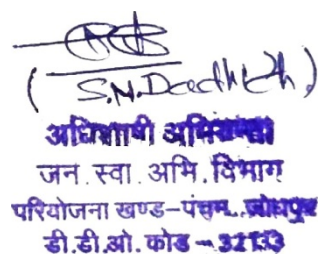 (S.N. Dadhich)
अधिशाषी अभियन्ता
जन.स्वा.अभि.विभाग
परियोजना खण्ड-पंचम..जोधपुर
डी.डी.ओ. कोड - 32133